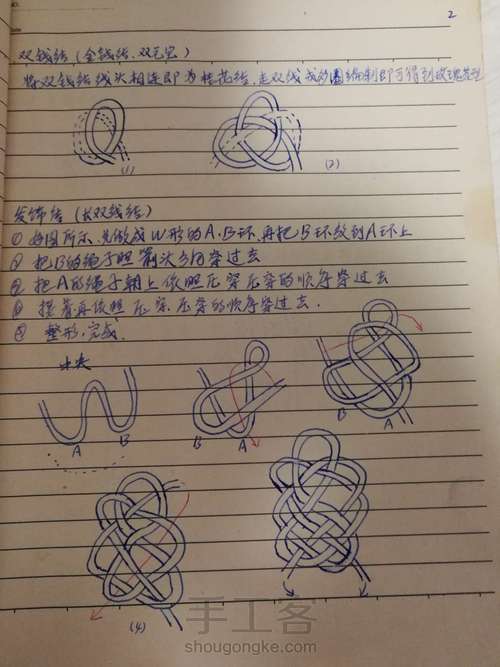 2
双钱结(金钱结、双元宝)
将双钱结线头相连即为桂花结,走双线或多圈编制即可得到玫瑰花型
(1)
(2)
发饰结(长双钱结)
① 如图所示,先做成W形的A、B环,再把B环放到A环上
② 把B的绳子照箭头方向穿过去
③ 把A的绳子朝上依照压穿压穿的顺序穿过去
④ 接着再依照压、穿、压穿的顺序穿过去.
⑤ 整形,完成.
中央
A
B
B
A
B
A
(4)
手工客
shougongke.com